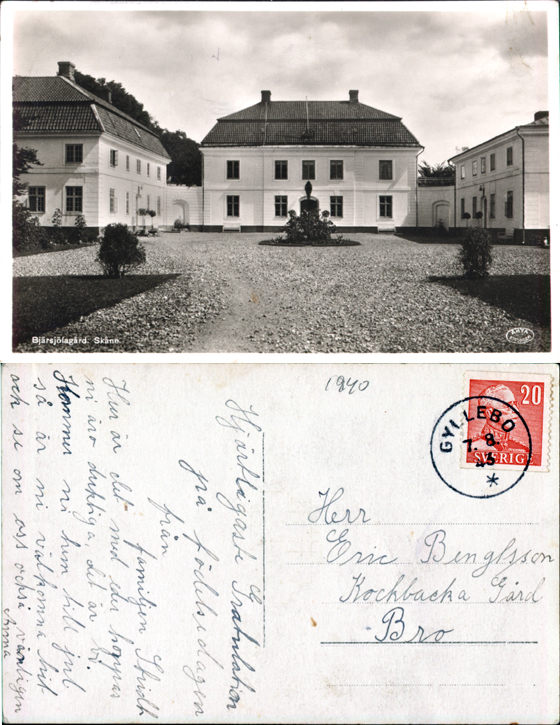 Bjärsjölagård. Skåne.
1940
20
SVERIGE
GYLLEBO
7.8.
43
Herr
Eric Benglsson
Kockbacka Gård
Bro
Hjärtligaste Gratulation
på födelsedagen
från
familjen
Hur är det med eder hoppas
ni äro duktiga, det är vi,
Kommer ni hem till jul
så är ni välkomna hit
och se om oss också vänligen
Anna